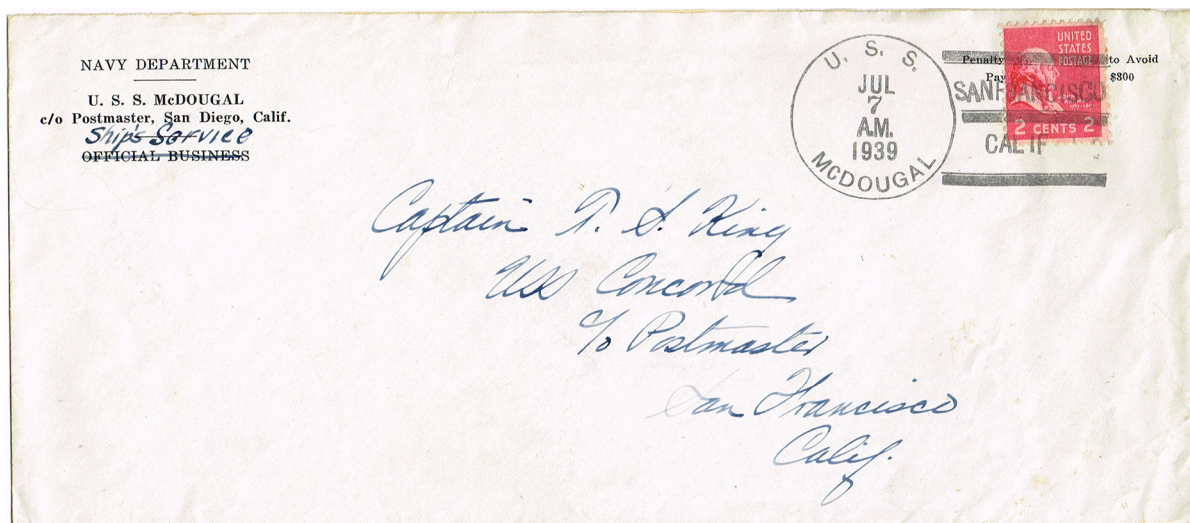 NAVY DEPARTMENT
U. S. S. McDOUGAL
c/o Postmaster, San Diego, Calif.
Ship's Service
OFFICIAL BUSINESS
U. S. S.
JUL
7
A.M.
1939
McDOUGAL
Penalty to Avoid
Pay $300
SAN FRANCISCO
CALIF
UNITED
STATES
POSTAGE
2 CENTS 2
Captain T. S. King
USS Concord
c/o Postmaster
San Francisco
Calif.